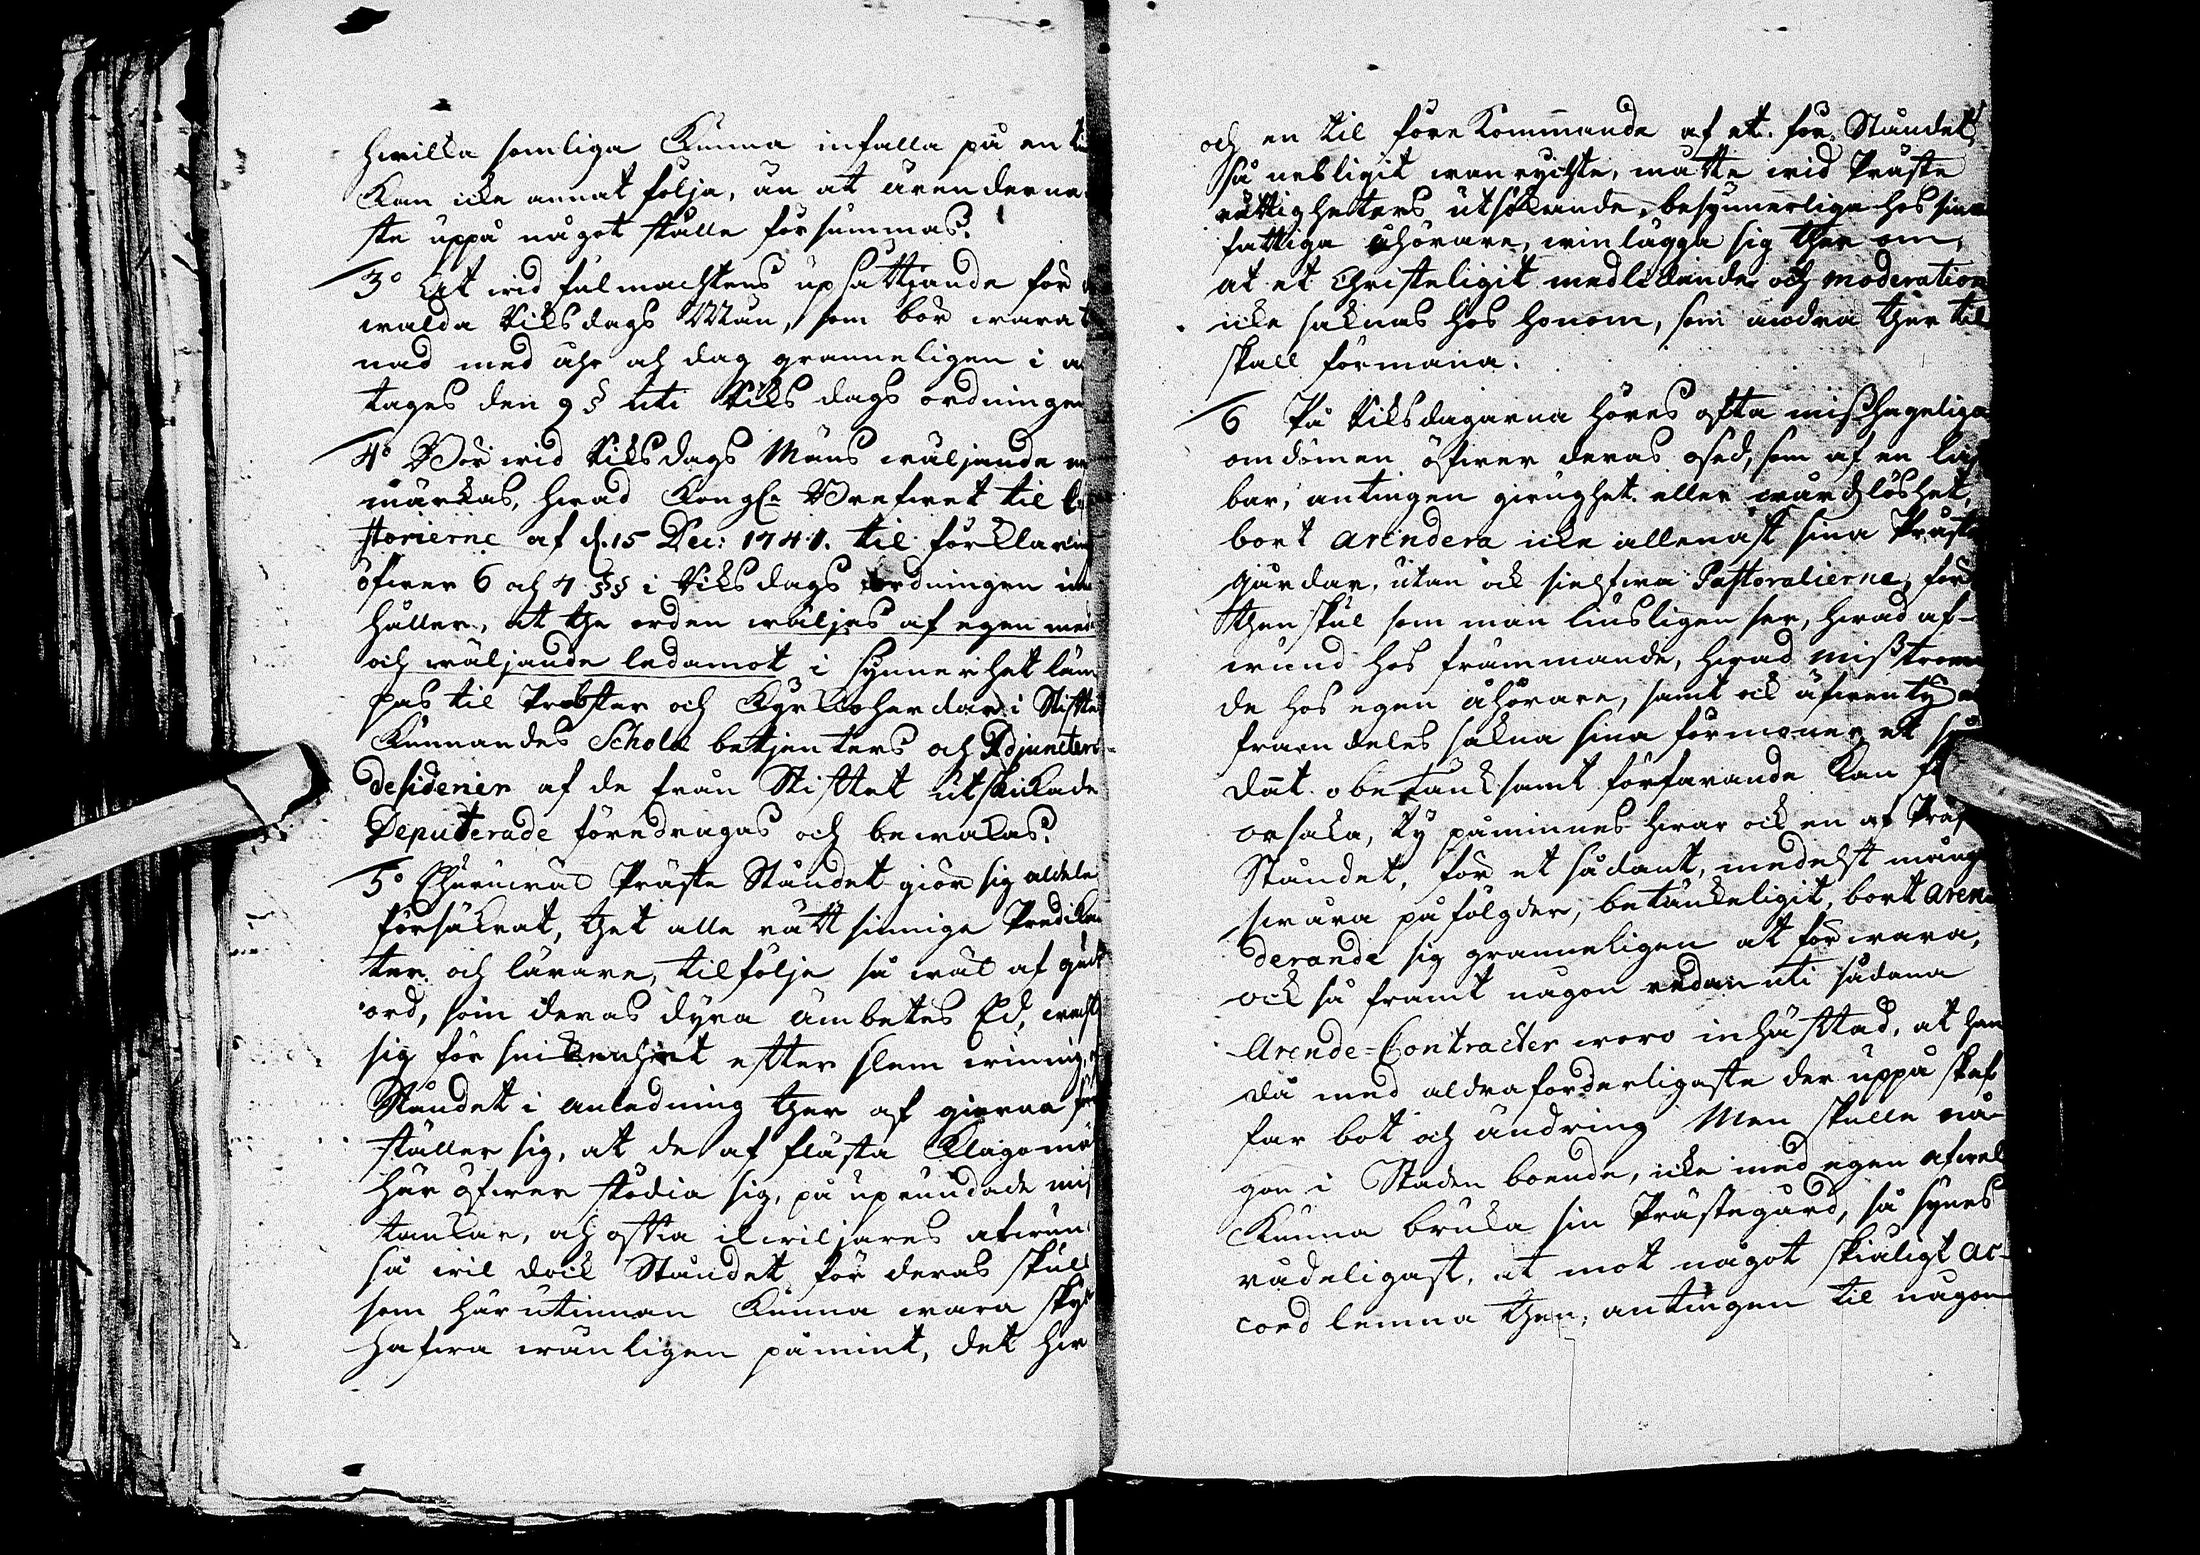 hwilka somliga kunna infalla på en
kan icke annat följa, än at ärenderna
ste uppå något ställe försummas.
3o At wid fulmachtens upsättjande för
walda Riksdags Män, som bör wara
nad med åhr och dag granneligen i
tages den 9 § uti Riks dags ordningen
4o Bör wid Riksdags Mäns wäljande
märkas, hwad Kongl. Brefwet til
storierne af d. 15 Dec: 1741. til förklaring
öfwer 6 och 7 §§ i Riksdags ordningen inne
håller, at the orden wäljes af egen med
och wäljande ledamot i synnerhet läm
pas til Probstar och Kyrkoherdar i Stiftet
kunnandes Scholæ betjenters och Adjuncters
desiderier af de från Stiftet utskickade
Deputerade föredragas och bewakas.
5o Ehuruwäl Präste Ståndet giör sig aldele
försäkrat, thet alle rätt sinnige Predikan
ter och lärare, tilfölje så wäl af guds
ord, som deras dyra ämbetes Ed,
sig för snikenhet efter slem winning,
Ståndet i anledning ther af gierna före
ställer sig, at de af flästa klagomål
här öfwer stödia sig, på ogrundade mis
tankar, och offta ilwiljares afwund
så wil dock Ståndet för deras skull
som härutinnan kunna wara skyl
hafwa wänligen påmint, det hw
och en til förekommande af et för Ståndet
så nesligit wanrychte, måtte wid Präste
rättigheters utsökande, besynnerliga hos sina
fattiga åhörare, winlägga sig ther om,
at et Christeligit medlidande och moderation
icke saknas hos honom, som andra ther til
skall förmana.
6 På Riksdagarna höres ofta misshageliga
omdömen öfwer deras osed, som af en
bar, antingen girughet eller wårdslöshet,
bort arendera icke allenast sina Präste
gårdar, utan ock sielfwa Pastoralierne, för
then skul som man liusligen ser, hwad af-
wund hos främmande, hwad misstroen
de hos egen åhörare, samt ock äfwentyr
framdeles sakna sina förmoner, et så
dant obetänksamt förfarande kan
orsaka, ty påminnes hwar ock en af Präste
Ståndet, för et sådant, medelst många
swåra påfölgder, betänkeligit, bort aren-
derande sig granneligen at förwara,
ock så framt någon redan uti sådana
Arende-Contracter woro inhäfftad, at han
då med aldraforderligaste der uppå skaf
far bot och ändring Men skulle nå-
gon i Staden boende, icke med egen afwel
kunna bruka sin Prästegård, så synes
rådeligast, at mot något skiäligt ac-
cord lemna then, antingen til någon